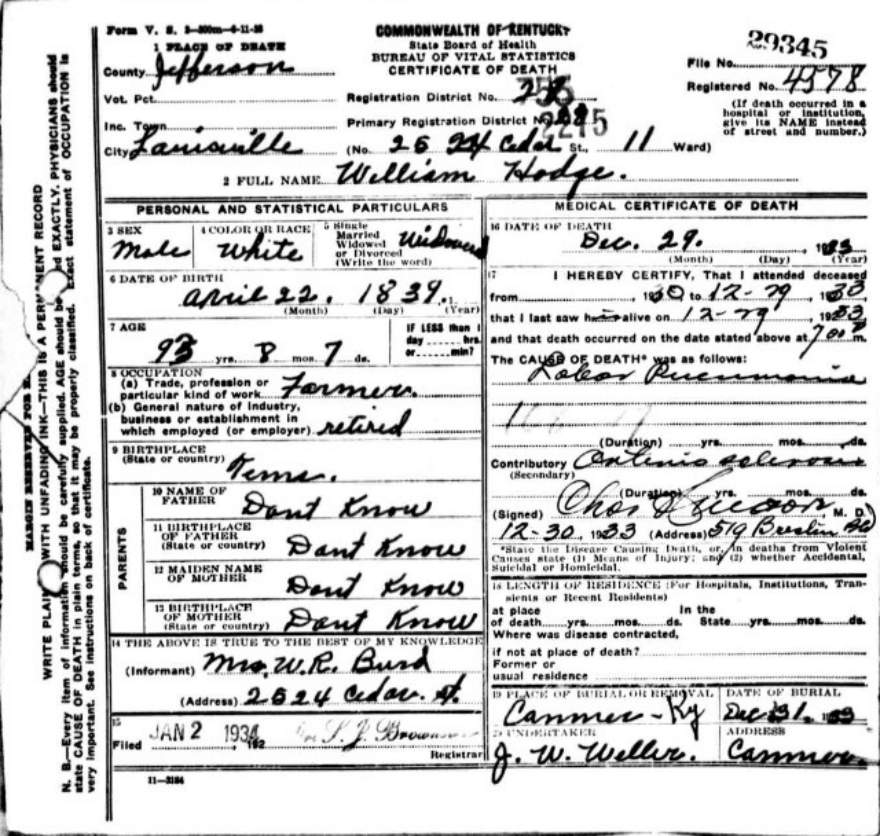 Form V. S. 1-300m-4-11-28
COMMONWEALTH OF KENTUCKY
State Board of Health
BUREAU OF VITAL STATISTICS
CERTIFICATE OF DEATH
1 PLACE OF DEATH
County Jefferson
Vot. Pct.
Inc. Town
City Louisville
Registration District No.
Primary Registration District No.
(No. 2524 Cedar St., 11 Ward)
29345
File No.
Registered No. 4578
(If death occurred in a
hospital or institution,
give its NAME instead
of street and number.)
2 FULL NAME William Hodge.
PERSONAL AND STATISTICAL PARTICULARS
3 SEX
Male
4 COLOR OR RACE
White
5 Single
Married
Widowed
or Divorced
(Write the word)
Widowed
6 DATE OF BIRTH
April 22. 1839.
(Month) (Day) (Year)
7 AGE
93 yrs. 8 mos. 7 ds.
IF LESS than 1
day hrs.
or min?
8 OCCUPATION
(a) Trade, profession or
particular kind of work Farmer.
(b) General nature of industry,
business or establishment in
which employed (or employer) retired
9 BIRTHPLACE
(State or country) Tenns.
PARENTS
10 NAME OF
FATHER Dont Know
11 BIRTHPLACE
OF FATHER
(State or country) Dont Know
12 MAIDEN NAME
OF MOTHER Dont Know
13 BIRTHPLACE
OF MOTHER
(State or country) Dont Know
14 THE ABOVE IS TRUE TO THE BEST OF MY KNOWLEDGE
(Informant) Mrs. W.R. Burd
(Address) 2524 Cedar. st.
15
Filed JAN 2 1934, 192
Registrar
11-3184
MEDICAL CERTIFICATE OF DEATH
16 DATE OF DEATH
Dec. 29. , 1933
(Month) (Day) (Year)
17 I HEREBY CERTIFY, That I attended deceased
from 1930 to 12-29, 1933
that I last saw him alive on 12-29, 1933
and that death occurred on the date stated above at 7 00 P m.
The CAUSE OF DEATH* was as follows:
Lobar Pneumonia
(Duration) yrs. mos. ds.
Contributory Arterio sclerosis
(Secondary)
(Duration) yrs. mos. ds.
(Signed) Chas M. D.
12-30, 1933 (Address) 519 Breslin Bld
*State the Disease Causing Death, or, in deaths from Violent
Causes state (1) Means of Injury; and (2) whether Accidental,
Suicidal or Homicidal.
18 LENGTH OF RESIDENCE (For Hospitals, Institutions, Tran-
sients or Recent Residents)
at place In the
of death yrs. mos. ds. State yrs. mos. ds.
Where was disease contracted,
if not at place of death?
Former or
usual residence
19 PLACE OF BURIAL OR REMOVAL
Canmer - Ky
DATE OF BURIAL
Dec 31. 1933
20 UNDERTAKER
J. W. Weller.
ADDRESS
Canmer.
MARGIN RESERVED FOR
WRITE PLAINLY WITH UNFADING INK—THIS IS A PERMANENT RECORD
N. B.—Every item of information should be carefully supplied. AGE should be stated EXACTLY. PHYSICIANS should
state CAUSE OF DEATH in plain terms, so that it may be properly classified. Exact statement of OCCUPATION is
very important. See instructions on back of certificate.